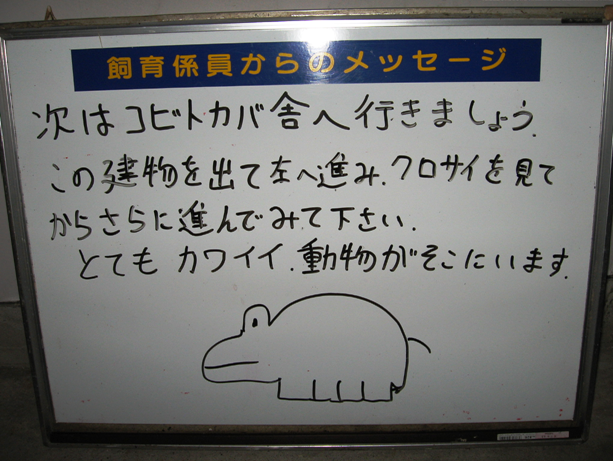 飼育係員からのメッセージ
次はコビトカバ舎へ行きましょう.
この建物を出て左へ進み.クロサイを見て
からさらに進んでみて下さい.
とても カワイイ.動物がそこにいます.